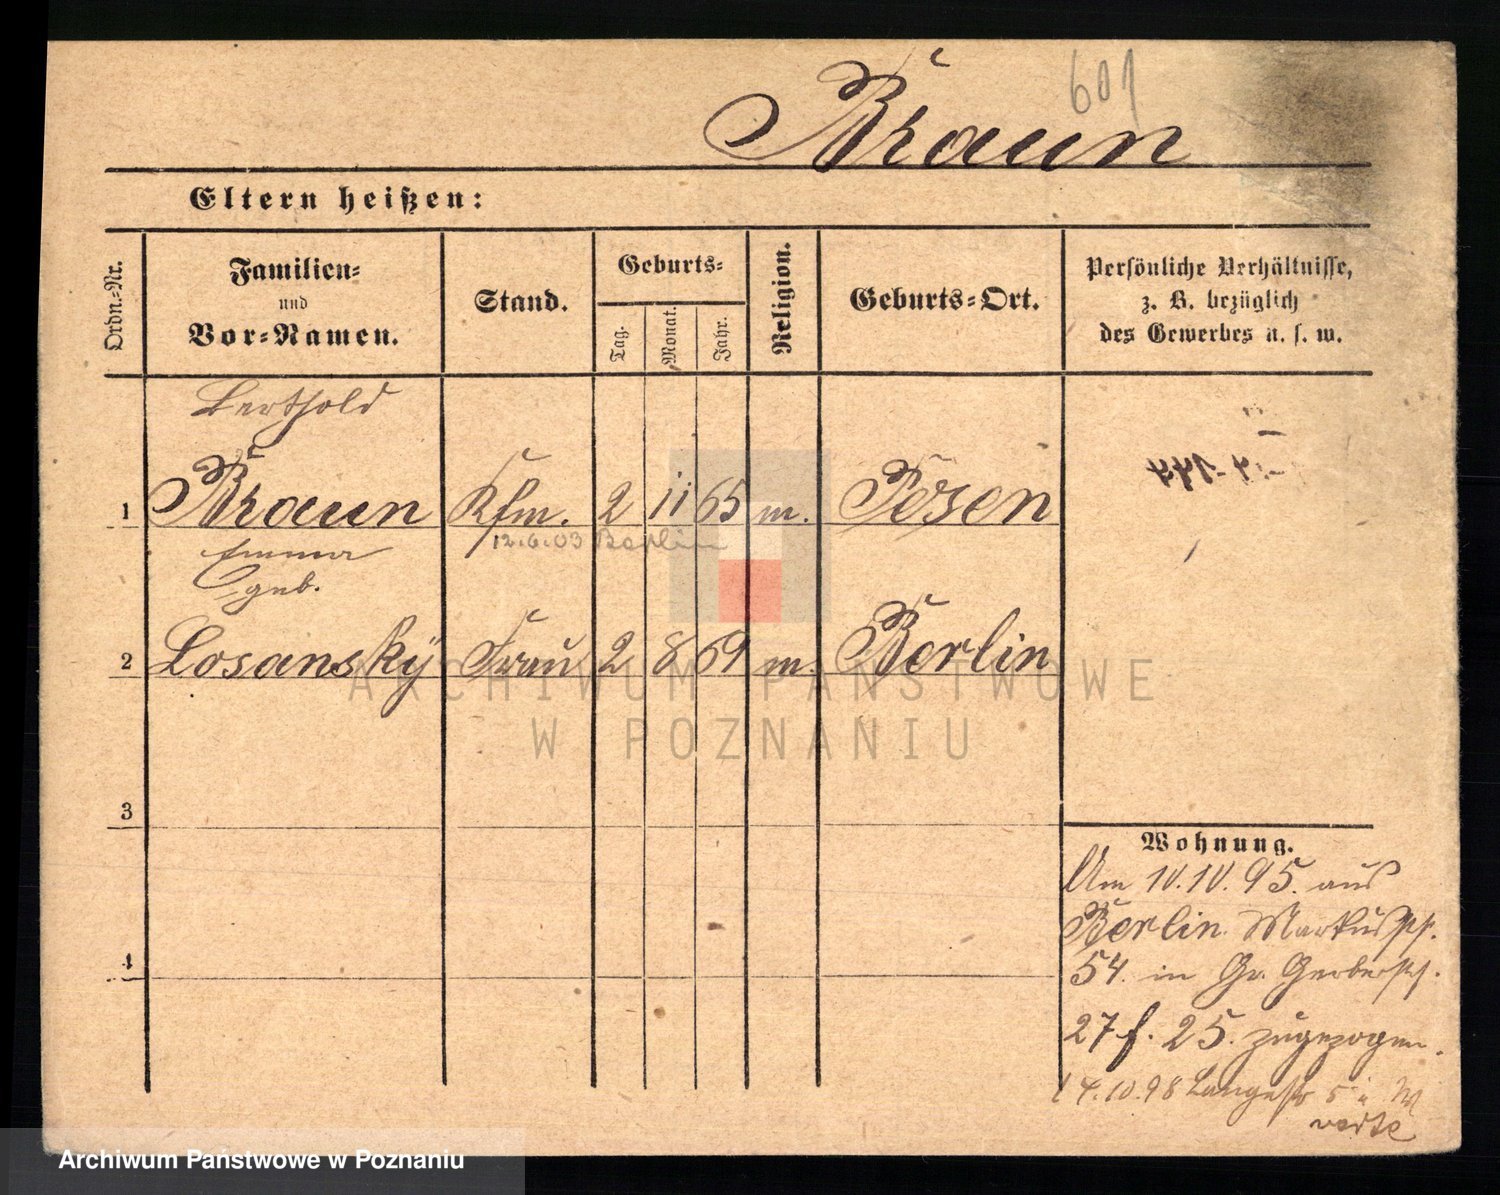 601
Braun
Eltern heißen:
Ordn.-Nr.
Familien-
und
Vor-Namen.
Stand.
Geburts-
Tag.
Monat.
Jahr.
Religion.
Geburts-Ort.
Persönliche Verhältnisse,
z. B. bezüglich
des Gewerbes u. s. w.
Berthold
1 Braun Kfm. 2 11 65 m. Posen
12.6.03 Berlin
Emma
geb.
2 Losansky Frau 2 8 69 m. Berlin
3
4
Wohnung.
Am 10.10.95. aus
Berlin. Markusstr.
54. in Gr. Gerberstr.
27 f. 25. zugezogen.
14.10.98 Langestr 5
verte
ARCHIWUM PAŃSTWOWE
W POZNANIU
Archiwum Państwowe w Poznaniu